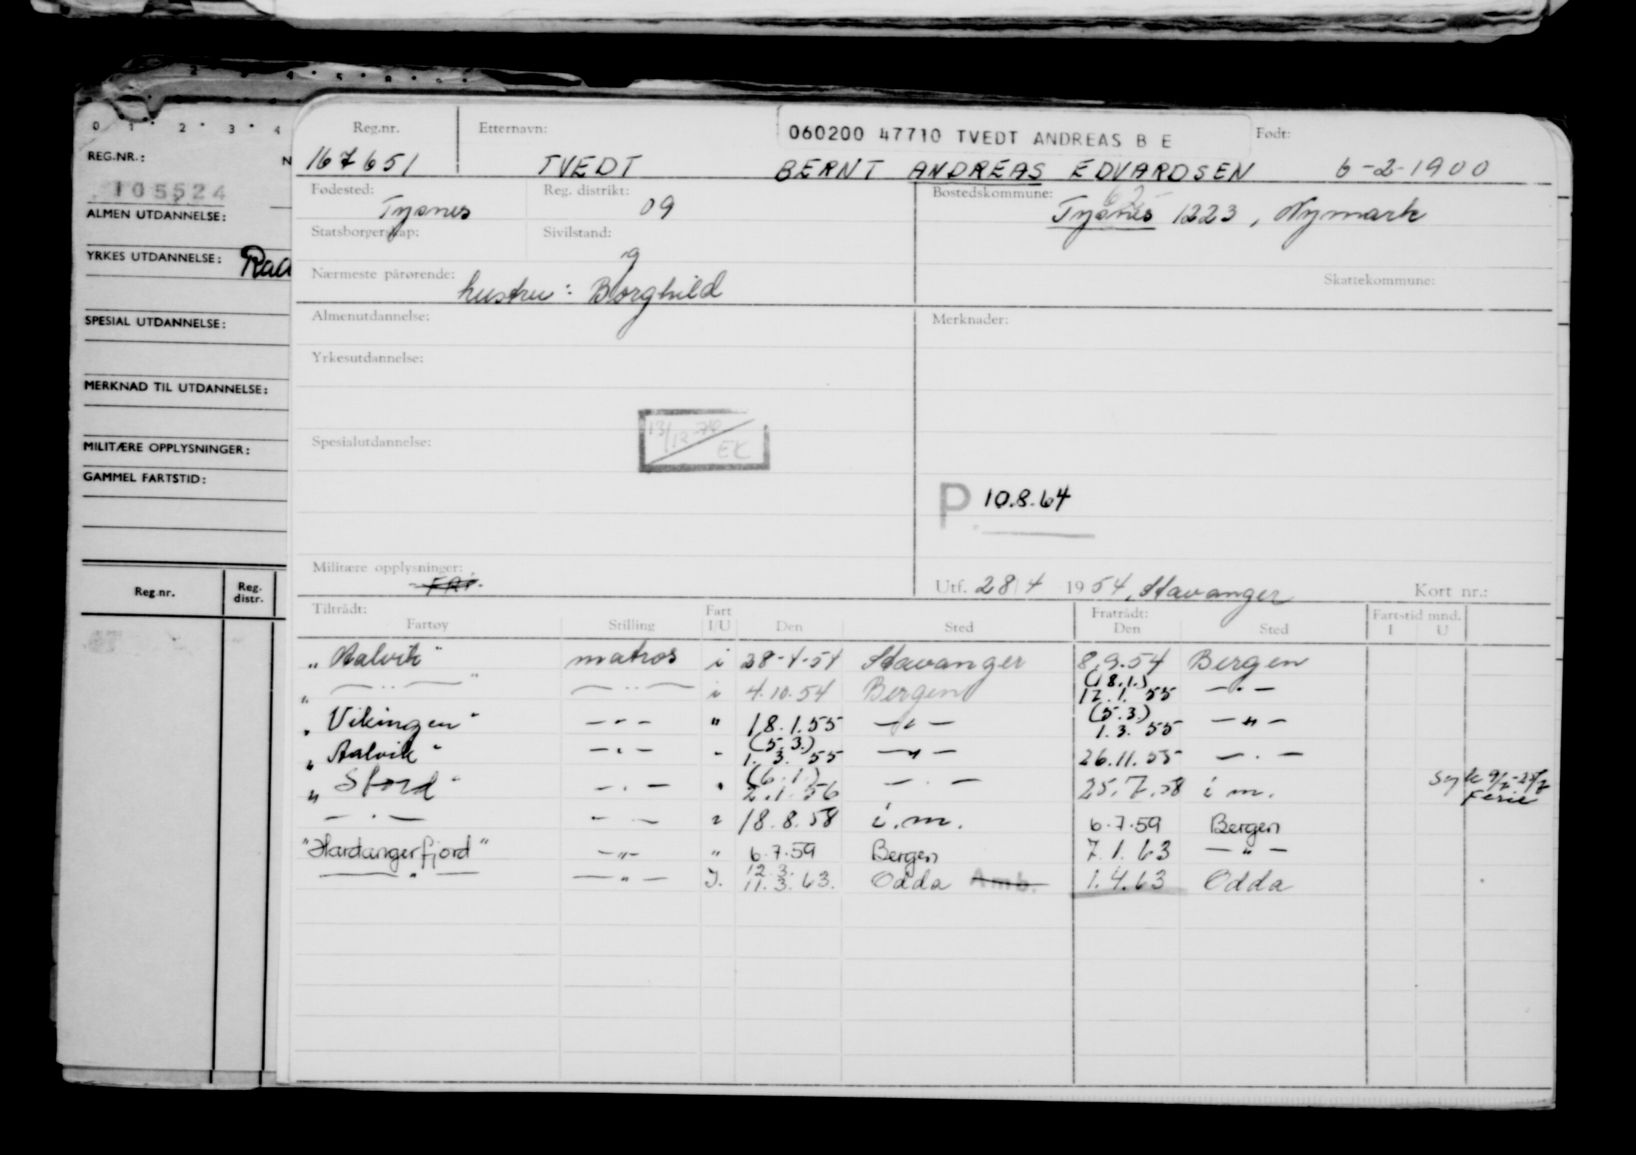 0 1 2 3 4 5 8
0 1 2 3 4
REG.NR.: N
105524
ALMEN UTDANNELSE:
YRKES UTDANNELSE: Rad
SPESIAL UTDANNELSE:
MERKNAD TIL UTDANNELSE:
MILITÆRE OPPLYSNINGER:
GAMMEL FARTSTID:
Reg.nr. Reg. distr.
Reg.nr. Etternavn: 060200 47710 TVEDT ANDREAS B E Født:
167651 TVEDT BERNT ANDREAS EDVARDSEN 6-2-1900
Fødested: Reg. distrikt: Bostedskommune:
Tysnes 09 Tysnes 1223, Nymark
Statsborgerskap: Sivilstand:
g
Nærmeste pårørende: hustru: Borghild Skattekommune:
Almenutdannelse: Merknader:
Yrkesutdannelse:
Spesialutdannelse: 13/12 EK
P 10.8.64
Militære opplysninger: FRI.
Utf. 28/4 1954, Stavanger Kort nr.:
Tiltrådt: Fart Fratrådt: Fartstid mnd.
Fartøy Stilling I/U Den Sted Den Sted I U
"Aalvik" matros i 28-4-54 Stavanger 8.9.54 Bergen
" — " — " — " — i 4.10.54 Bergen (18.1.) 17.1.55 — " —
"Vikingen" — " — " 18.1.55 — " — (5.3.) 1.3.55 — " —
"Aalvik" — " — " (5.3.) 1.3.55 — " — 26.11.55 — " —
"Stord" — " — " (6.1.) 2.1.56 — " — 25.7.58 i m. Syk 9/7-25/7 Ferie
— " — — " — " 18.8.58 i.m. 6.7.59 Bergen
"Hardangerfjord" — " — " 6.7.59 Bergen 7.1.63 — " —
— " — — " — I. 12.3. 11.3.63. Odda Amb. 1.4.63 Odda